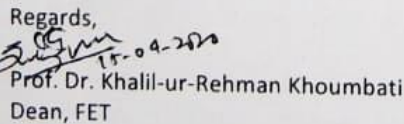 Regards,
15-04-2020
Prof. Dr. Khalil-ur-Rehman Khoumbati
Dean, FET